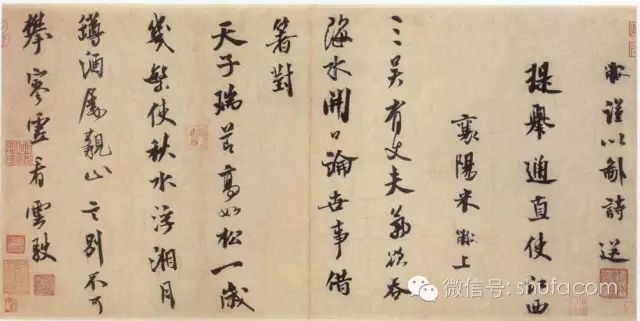 黻謹以鄙詩送
提舉通直使江西
襄陽米黻上
三吴有丈夫氣欲吞
海水開口論世事借
箸對
天子瑞節高如松一歲
幾繁使秋水浮湘月
罇酒屬親山言別不可
攀寥雲看雲駛
微信号: shufa.com